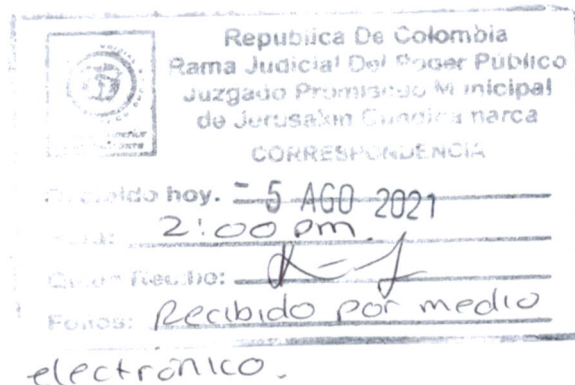 Republica De Colombia
Rama Judicial Del Poder Público
Juzgado Promiscuo Municipal
de Jerusalen Cundinamarca
CORRESPONDENCIA
Recibido hoy. - 5 AGO 2021
Hora: 2:00 pm.
Quien Recibe:
Folios: Recibido por medio
electrónico.